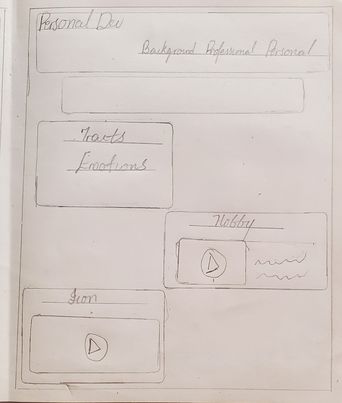 Personal Dev
Background Professional Personal
Traits
Emotions
Hobby
Icon